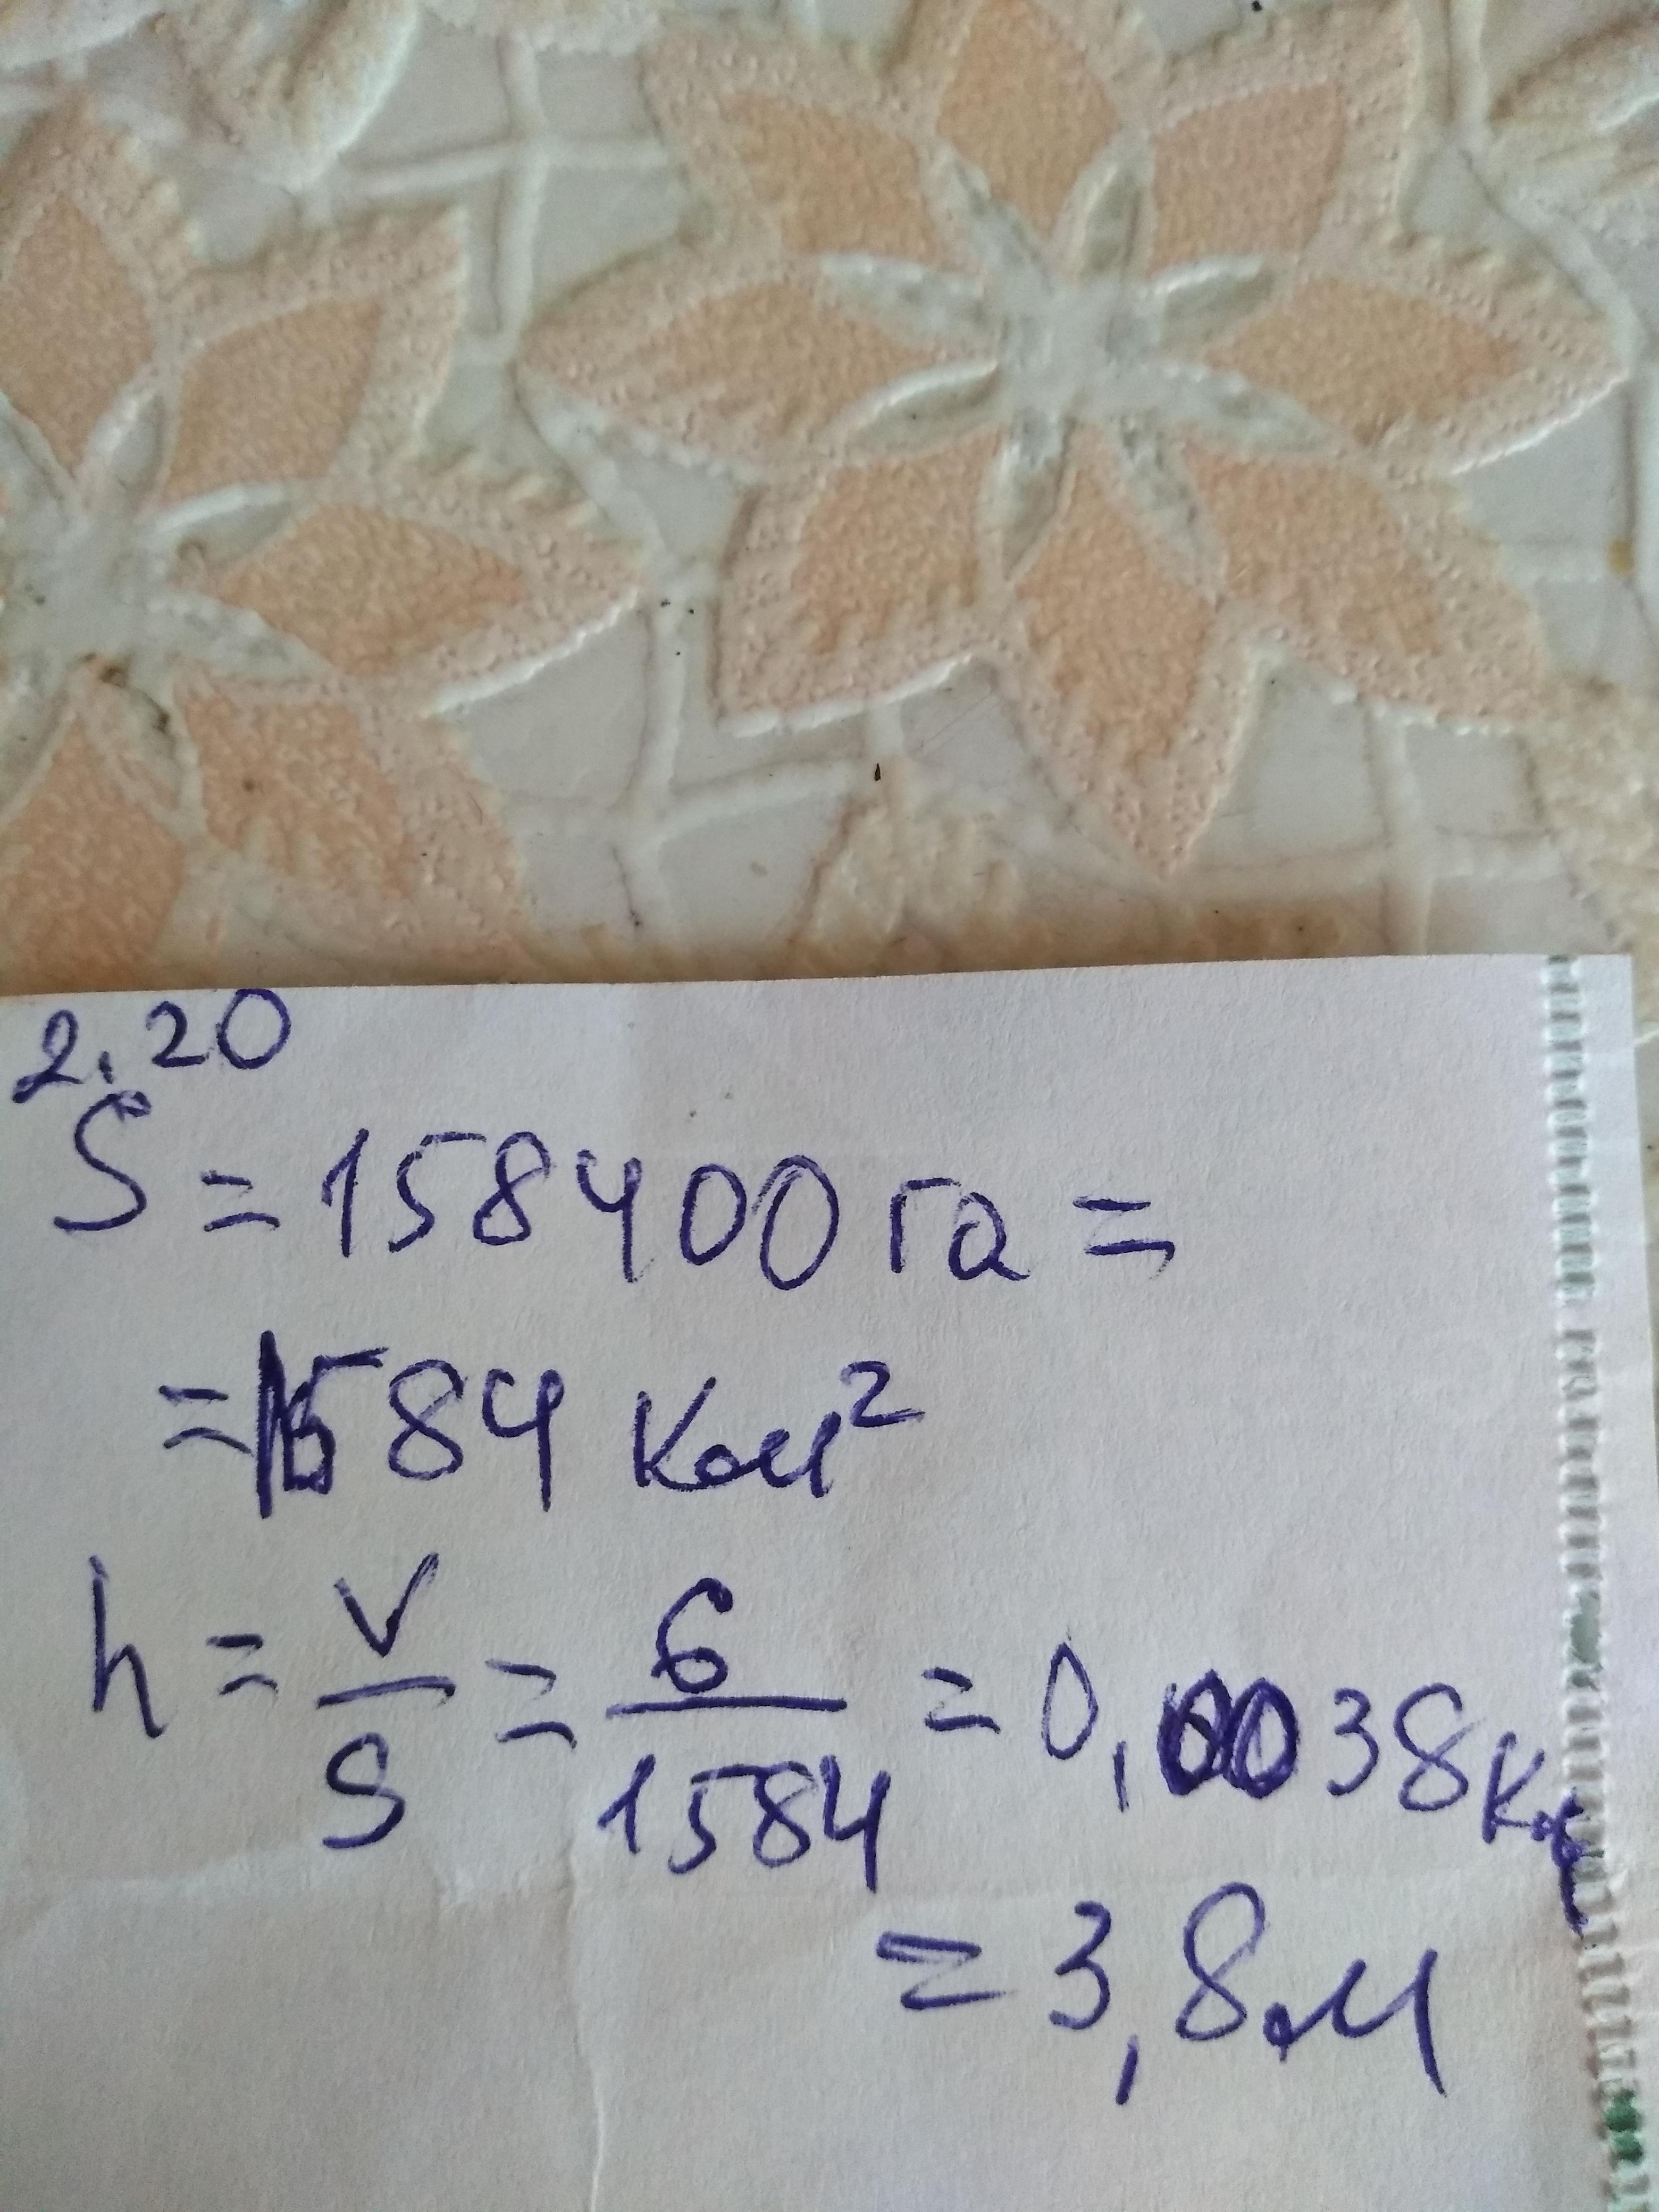 2.20
S = 158400 га =
= 1584 км²
h = V/S = 6/1584 = 0,0038 км
= 3,8 м